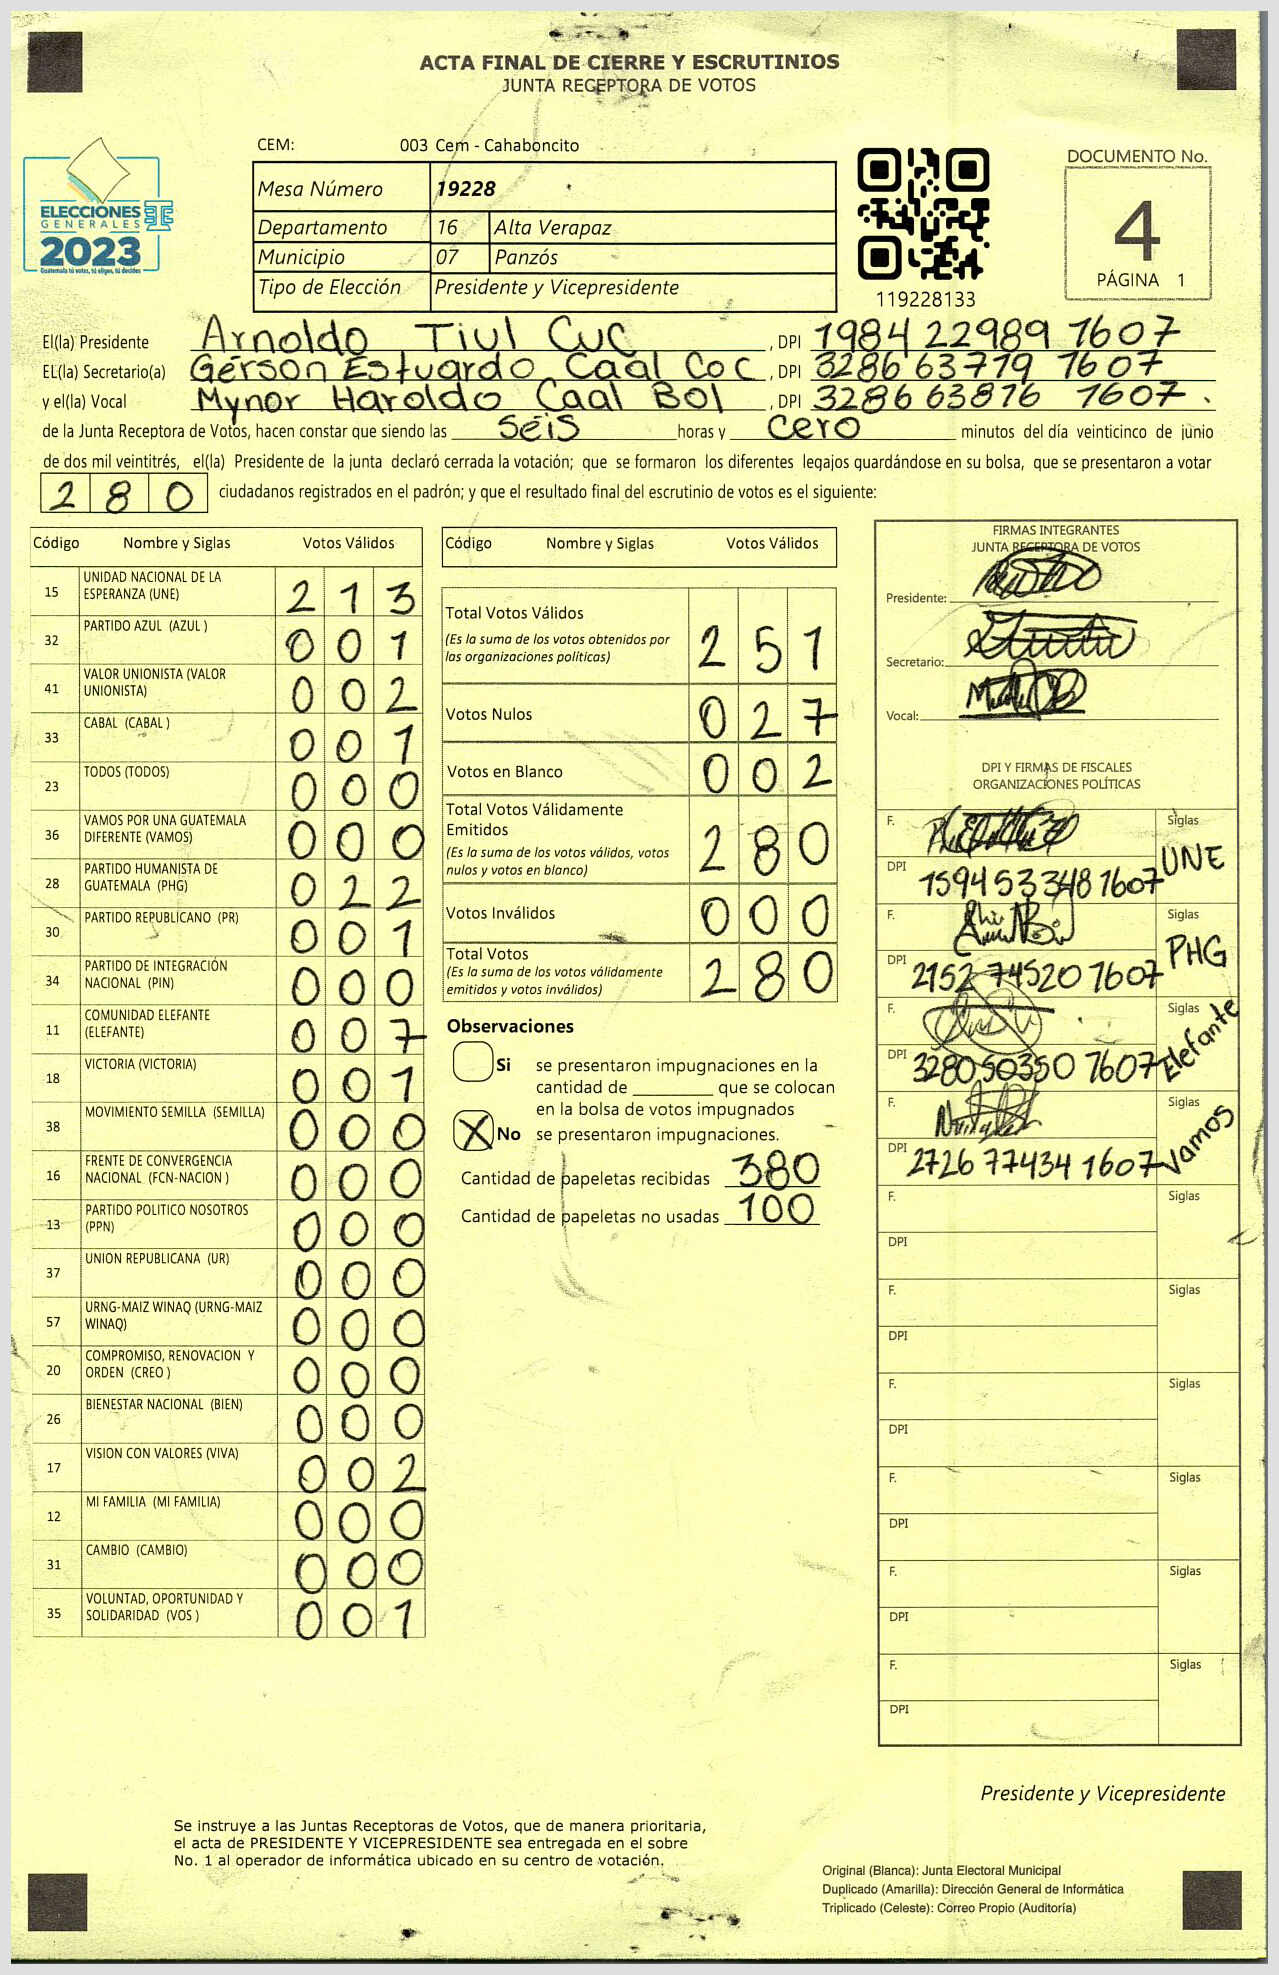 ACTA FINAL DE CIERRE Y ESCRUTINIOS
JUNTA RECEPTORA DE VOTOS
CEM: 003 Cem - Cahaboncito
Mesa Número 19228
Departamento 16 Alta Verapaz
Municipio 07 Panzós
Tipo de Elección Presidente y Vicepresidente
ELECCIONES
GENERALES
2023
Guatemala tú votas, tú eliges, tú decides
119228133
DOCUMENTO No.
4
PÁGINA 1
El(la) Presidente Arnoldo Tiul Cuc, DPI 1984 22989 1607
EL(la) Secretario(a) Gérson Estuardo Caal Coc, DPI 3286 63779 1607
y el(la) Vocal Mynor Haroldo Caal Bol, DPI 3286 63876 1607.
de la Junta Receptora de Votos, hacen constar que siendo las seis horas y cero minutos del día veinticinco de junio
de dos mil veintitrés, el(la) Presidente de la junta declaró cerrada la votación; que se formaron los diferentes legajos guardándose en su bolsa, que se presentaron a votar
280 ciudadanos registrados en el padrón; y que el resultado final del escrutinio de votos es el siguiente:
Código Nombre y Siglas Votos Válidos
15 UNIDAD NACIONAL DE LA ESPERANZA (UNE) 213
32 PARTIDO AZUL (AZUL ) 001
41 VALOR UNIONISTA (VALOR UNIONISTA) 002
33 CABAL (CABAL ) 001
23 TODOS (TODOS) 000
36 VAMOS POR UNA GUATEMALA DIFERENTE (VAMOS) 000
28 PARTIDO HUMANISTA DE GUATEMALA (PHG) 022
30 PARTIDO REPUBLICANO (PR) 001
34 PARTIDO DE INTEGRACIÓN NACIONAL (PIN) 000
11 COMUNIDAD ELEFANTE (ELEFANTE) 007
18 VICTORIA (VICTORIA) 001
38 MOVIMIENTO SEMILLA (SEMILLA) 000
16 FRENTE DE CONVERGENCIA NACIONAL (FCN-NACION ) 000
13 PARTIDO POLITICO NOSOTROS (PPN) 000
37 UNION REPUBLICANA (UR) 000
57 URNG-MAIZ WINAQ (URNG-MAIZ WINAQ) 000
20 COMPROMISO, RENOVACION Y ORDEN (CREO ) 000
26 BIENESTAR NACIONAL (BIEN) 000
17 VISION CON VALORES (VIVA) 002
12 MI FAMILIA (MI FAMILIA) 000
31 CAMBIO (CAMBIO) 000
35 VOLUNTAD, OPORTUNIDAD Y SOLIDARIDAD (VOS ) 001
Código Nombre y Siglas Votos Válidos
Total Votos Válidos 251
(Es la suma de los votos obtenidos por
las organizaciones políticas)
Votos Nulos 027
Votos en Blanco 002
Total Votos Válidamente
Emitidos 280
(Es la suma de los votos válidos, votos
nulos y votos en blanco)
Votos Inválidos 000
Total Votos 280
(Es la suma de los votos válidamente
emitidos y votos inválidos)
Observaciones
Si se presentaron impugnaciones en la
cantidad de ________ que se colocan
en la bolsa de votos impugnados
X No se presentaron impugnaciones.
Cantidad de papeletas recibidas 380
Cantidad de papeletas no usadas 100
FIRMAS INTEGRANTES
JUNTA RECEPTORA DE VOTOS
Presidente:
Secretario:
Vocal:
DPI Y FIRMAS DE FISCALES
ORGANIZACIONES POLÍTICAS
F. Siglas UNE
DPI 1594 53348 1607
F. Siglas PHG
DPI 2152 74520 1607
F. Siglas Elefante
DPI 3280 50350 1607
F. Siglas Vamos
DPI 2726 77434 1607
F. Siglas
DPI
F. Siglas
DPI
F. Siglas
DPI
F. Siglas
DPI
F. Siglas
DPI
F. Siglas
DPI
Presidente y Vicepresidente
Se instruye a las Juntas Receptoras de Votos, que de manera prioritaria,
el acta de PRESIDENTE Y VICEPRESIDENTE sea entregada en el sobre
No. 1 al operador de informática ubicado en su centro de votación.
Original (Blanca): Junta Electoral Municipal
Duplicado (Amarilla): Dirección General de Informática
Triplicado (Celeste): Correo Propio (Auditoría)